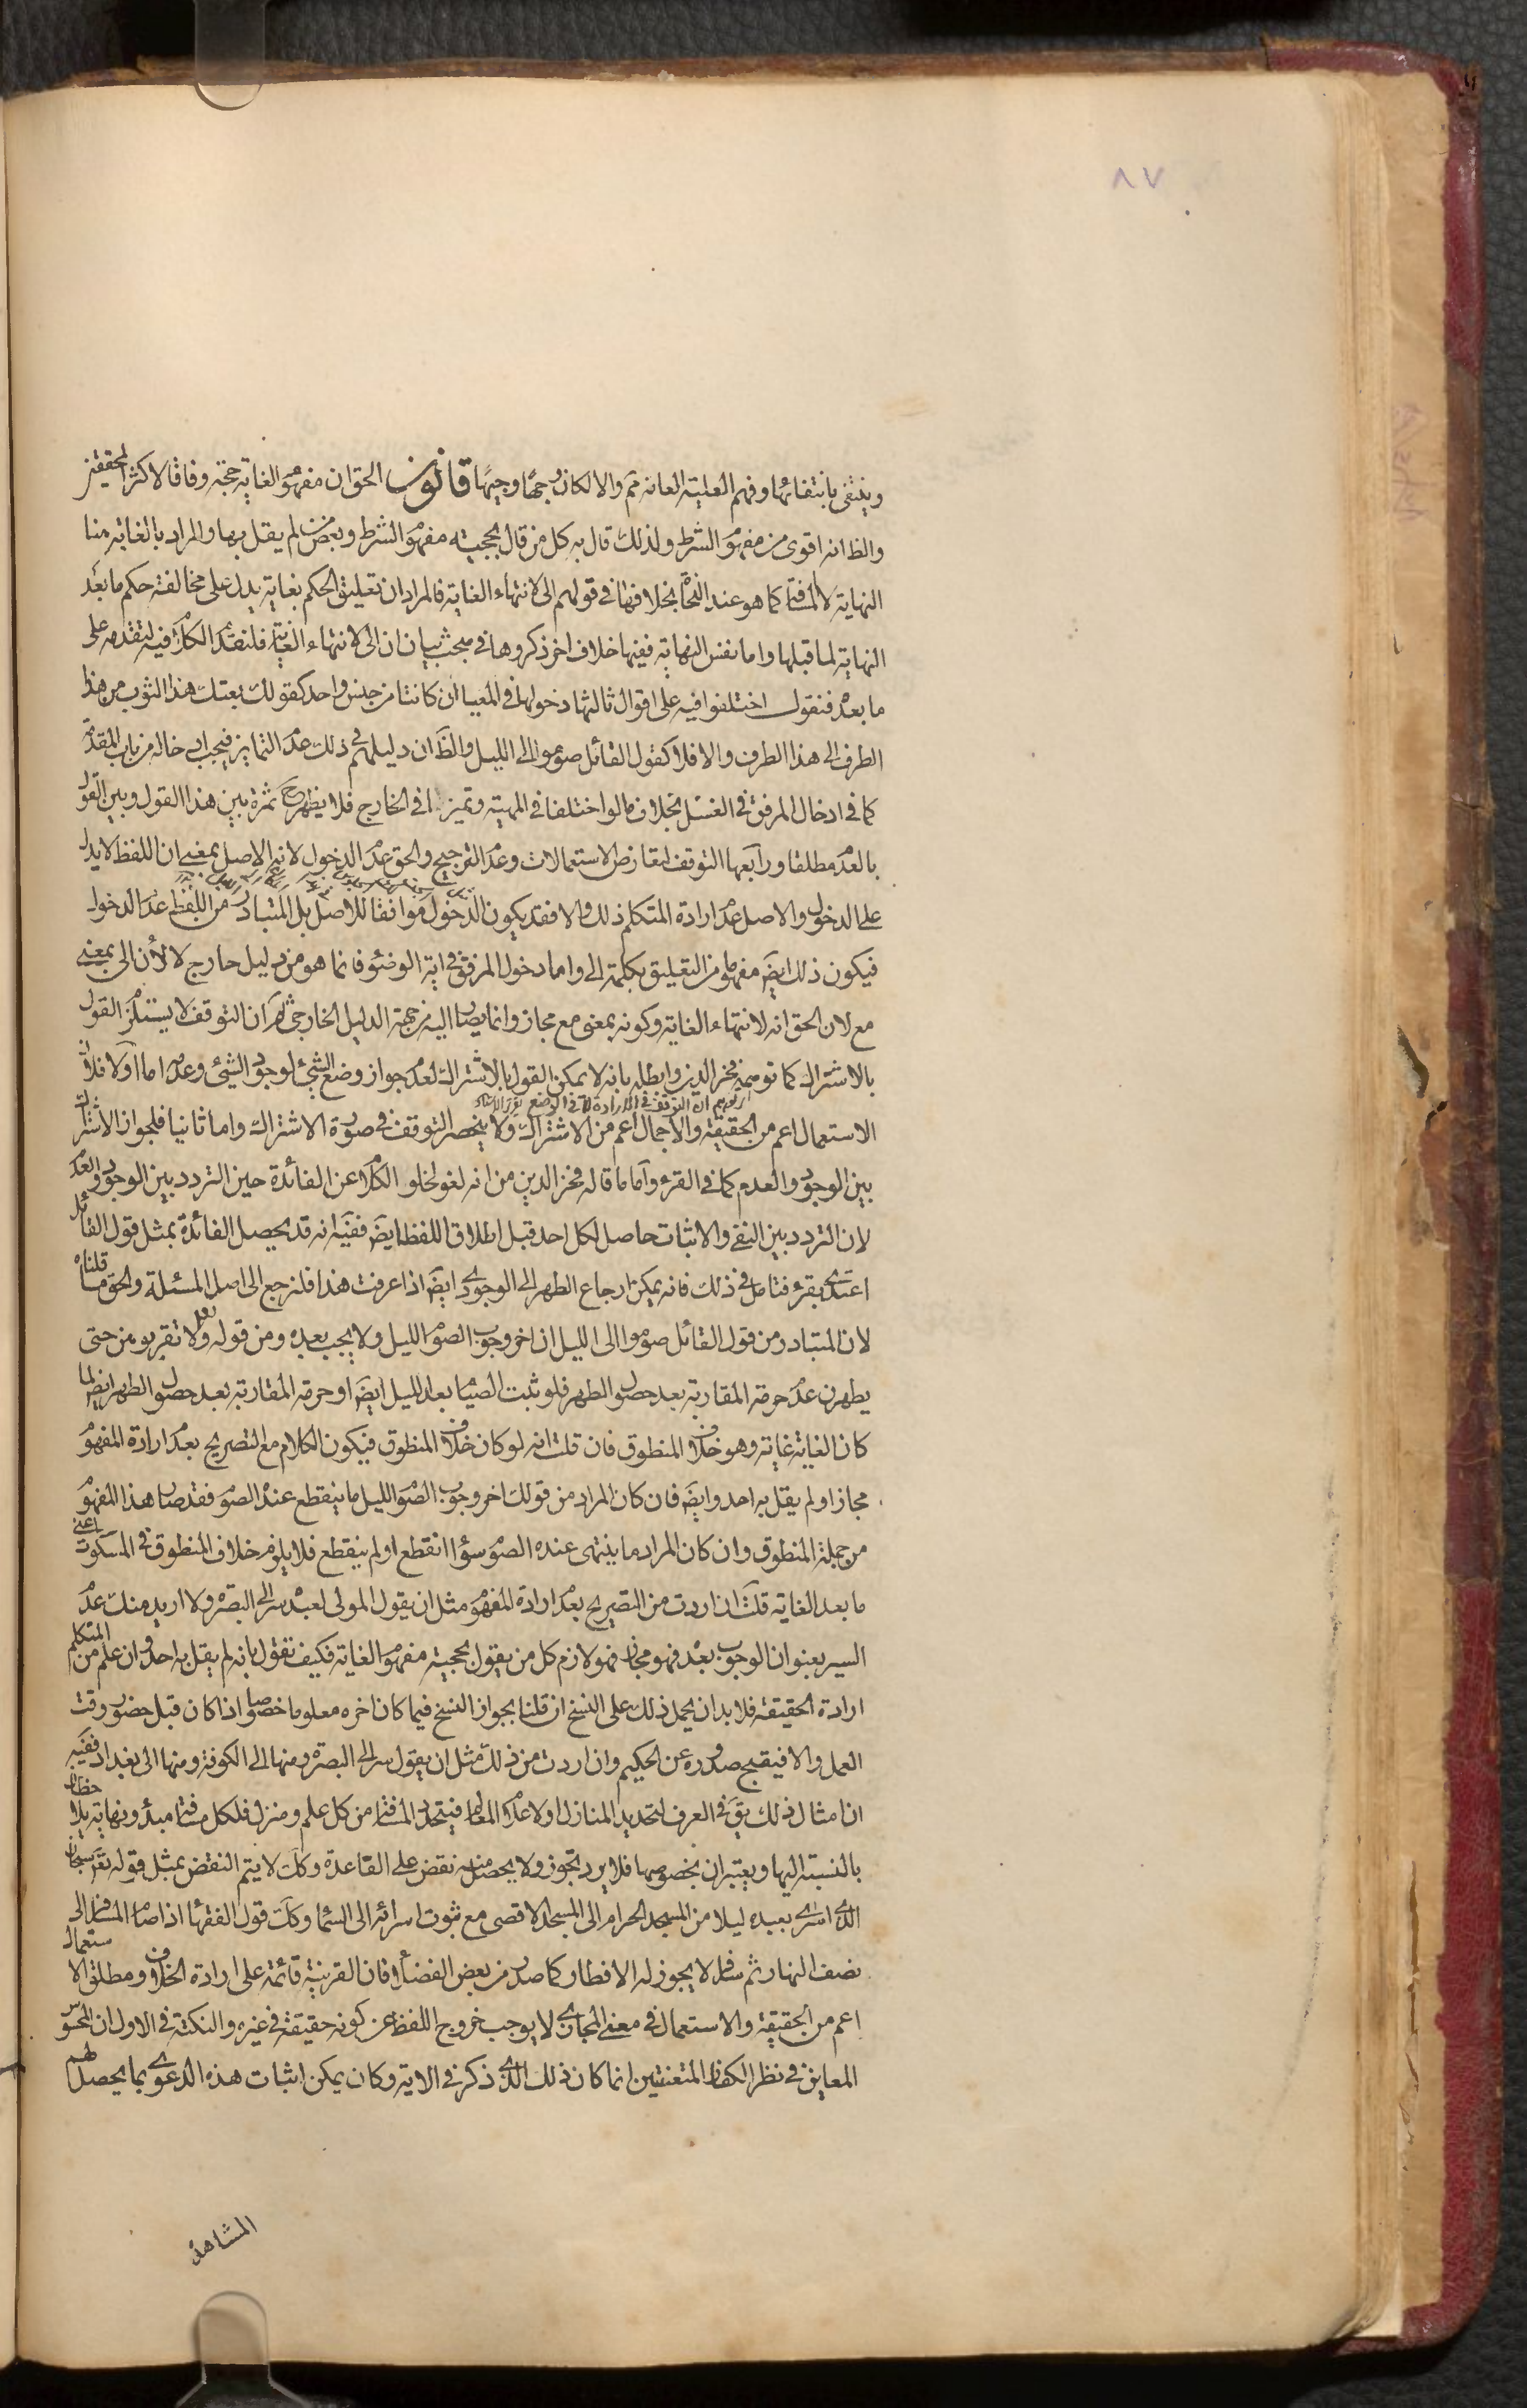 ٨٧
وينتفى بانتفائها وفهم العلية العامة ثم والا لكان وجها وجيها قانون الحق ان مفهوم الغاية حجة وفاقا لاكثر المحققين
والظ انه اقوى من مفهوم الشرط ولذلك قال به كل من قال بحجيته مفهوم الشرط وبعض من لم يقل بها والمراد بالغاية هنا
النهاية لا المسافة كما هو عند النحاة بخلافها في قولهم الى لانتهاء الغاية فالمراد ان تعليق الحكم بغاية يدل على مخالفة حكم ما بعد
النهاية لما قبلها واما نفس النهاية ففيها خلاف اخر ذكروها في مبحث بيان ان الى لانتهاء الغاية فلنقدم الكلام فيه لتقدمه على
ما بعده فنقول اختلفوا فيه على اقوال ثالثها دخولها في المغيا ان كانتا من جنس واحد كقولك بعتك هذا الثوب من هذا
الطرف الى هذا الطرف والا فلا كقول القائل صوموا الى الليل والظ ان دليلهم في ذلك عدم التمايز فيجب ادخاله من باب المقدمة
كما في ادخال المرفق في الغسل بخلاف ما لو اختلفا في المهية وتميزا في الخارج فلا يظهر ح ثمرة بين هذا القول وبين القول
بالعدم مطلقا ورابعها التوقف لتعارض الاستعمالات وعدم الترجيح والحق عدم الدخول لانه الاصل بمعنى ان اللفظ لا يدل
على الدخول والاصل عدم ارادة المتكلم ذلك والا فقد يكون الدخول موافقا للاصل بل المتبادر من اللفظ عدم الدخول
فيكون ذلك ايضَ مفهوما من التعليق بكلمة الى واما دخول المرفق في اية الوضوء فانما هو من دليل خارج لا لأن الى بمعنى
مع لان الحق انه لانتهاء الغاية وكونه بمعنى مع مجاز وانما يصار اليه من جهة الدليل الخارجي ثم ان التوقف لا يستلزم القول
بالاشتراك كما توهمه فخر الدين وابطله بانه لا يمكن القول بالاشتراك لعدم جواز وضع الشيء لوجود الشيء وعدمه اما اولا فلان
اذ توهم ان التوقف في الارادة لا في الوضع
الاستعمال اعم من الحقيقة والاجمال اعم من الاشتراك ولا ينحصر التوقف في صورة الاشتراك واما ثانيا فلجواز الاشتراك
بين الوجود والعدم كما في القرء وأما ما قاله فخر الدين من انه لغو لخلو الكلام عن الفائدة حين التردد بين الوجود والعدم
لان التردد بين النفي والاثبات حاصل لكل احد قبل اطلاق اللفظ ايضَ ففيه انه قد يحصل الفائدة بمثل قول القائل
اعتدى بقرء فتامل في ذلك فانه يمكن ارجاع الطهر الى الوجودي ايضَ اذا عرفت هذا فلنرجع الى اصل المسئلة والحق ما قلناه
لان المتبادر من قول القائل صوموا الى الليل ان اخر وجوب الصوم الليل ولا يجب بعده ومن قوله تعالى ولا تقربوهن حتى
يطهرن عدم حرمة المقاربة بعد حصول الطهر فلو ثبت الصيام بعد الليل ايضَ او حرمة المقاربة بعد حصول الطهر ايضا لما
كان الغاية غاية وهو خلاف المنطوق فان قلت انه لو كان خلاف المنطوق فيكون الكلام مع التصريح بعدم ارادة المفهوم
مجازا ولم يقل به احد وايضَ فان كان المراد من قولك اخر وجوب الصوم الليل ما ينقطع عنده الصوم فقد صار هذا المفهوم
من جملة المنطوق وان كان المراد ما ينتهى عنده الصوم سواء انقطع او لم ينقطع فلا يلزم خلاف المنطوق في المسكوت اعنى
ما بعد الغاية قلت ان اردت من التصريح بعدم ارادة المفهوم مثل ان يقول المولى لعبده سر الى البصرة ولا اريد منك عدم
السير بعنوان الوجوب بعده فهو مجاز فهو لازم كل من يقول بحجية مفهوم الغاية فكيف تقول بانه لم يقل به احد وان علم من المتكلم
ارادة الحقيقة فلا بد ان يحمل ذلك على النسخ ان قلنا بجواز النسخ فيما كان اخره معلوما خصوصا اذا كان قبل حضور وقت
العمل والا فيقبح صدوره عن الحكيم وان اردت من ذلك مثل ان يقول سر الى البصرة ومنها الى الكوفة ومنها الى بغداد ففيه
ان امثال ذلك يقَ في العرف لتحديد المنازل ولاعلام المعالم فيتحدد المسافة من كل علم ومنزل فلكل مسافة مبدء ونهاية يلاحظان
بالنسبة اليها ويعتبران بخصوصها فلا يرد تجوز ولا يحصل منه نقض على القاعدة وكذا لا يتم النقض بمثل قوله تعَ سبحان
الذي اسرى بعبده ليلا من المسجد الحرام الى المسجد الاقصى مع ثبوت اسرائه الى السماء وكذا قول الفقهاء اذا صام المسافر الى
نصف النهار ثم سافر لا يجوز له الافطار كما صدر من بعض الفضلأ فان القرينة قائمة على ارادة الخلاف ومطلق الاستعمال
اعم من الحقيقة والاستعمال في معنى المجازي لا يوجب خروج اللفظ عن كونه حقيقة في غيره والنكتة في الاول ان المحسوس
المعاين في نظر الكفار المتعنتين انما كان ذلك الذي ذكر في الاية وكان يمكن اثبات هذه الدعوى بما يحصل لهم
المشاهدة